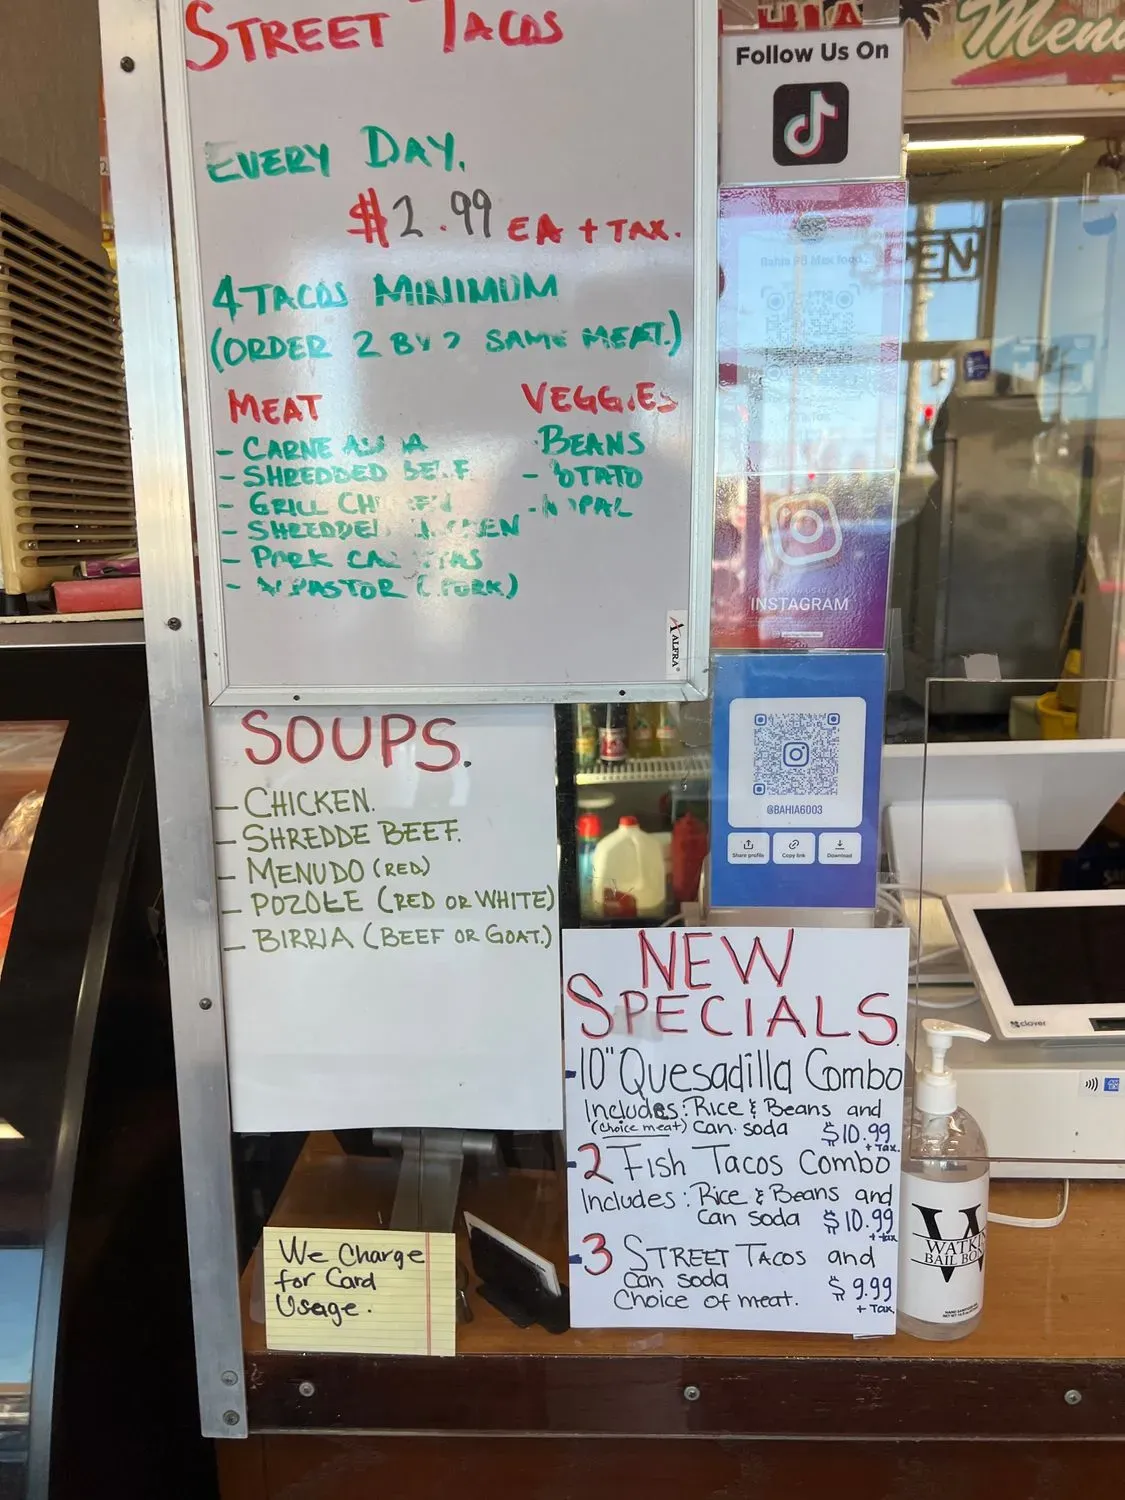 STREET TACOS
EVERY DAY.
$2.99 EA + TAX.
4 TACOS MINIMUM
(ORDER 2 BY 2 SAME MEAT.)
MEAT
- CARNE ASADA
- SHREDDED BEEF
- GRILL CHICKEN
- SHREDDED CHICKEN
- PORK CARNITAS
- AL PASTOR (PORK)
VEGGIES
- BEANS
- POTATO
- NOPAL
ALFRA
SOUPS.
- CHICKEN.
- SHREDDE BEEF.
- MENUDO (RED)
- POZOLE (RED OR WHITE)
- BIRRIA (BEEF OR GOAT.)
We Charge
for Card
Usage.
Menu
Follow Us On
Bahia
OPEN
INSTAGRAM
@BAHIA6003
Share profile
Copy link
Download
NEW
SPECIALS.
- 10" Quesadilla Combo
Includes: Rice & Beans and
(choice meat) Can soda $10.99
+ Tax.
- 2 Fish Tacos Combo
Includes: Rice & Beans and
Can soda $10.99
+ tax
- 3 STREET TACOS and
can soda $9.99
Choice of meat. + Tax
clover
WATKINS
BAIL BONDS